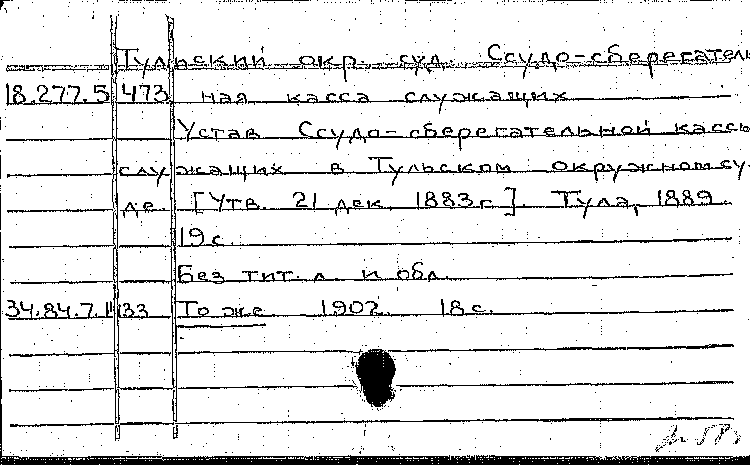 Тульский окр. суд. Ссудо-сберегатель
18.277.5 473 ная касса служащих
Устав Ссудо-сберегательной кассы
служащих в Тульском окружном су-
де. [Утв. 21 дек. 1883 г.]. Тула, 1889.
19 с.
Без тит. л. и обл.
34.84.7. 133 То же 1902. 18 с.